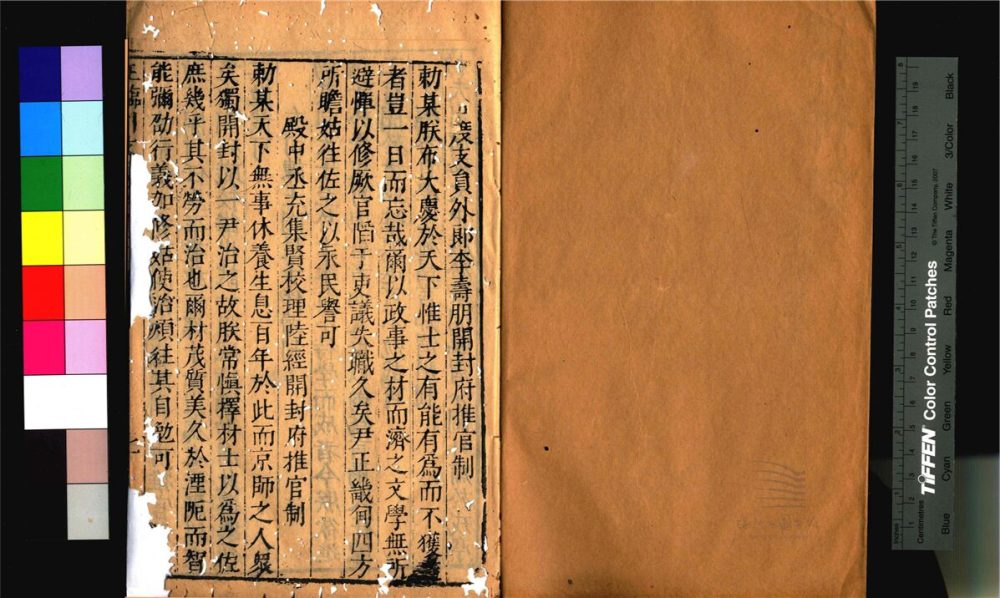 度支員外郎李壽朋開封府推官制
勅某朕布大慶於天下惟士之有能有為而不獲
者豈一日而忘哉爾以政事之材而濟之文學無所
避憚以修厥官㨔于吏議失職久矣尹正畿甸四方
所瞻姑往佐之以永民譽可
殿中丞充集賢校理陸經開封府推官制
勅某天下無事休養生息百年於此而京師之人眾
矣獨開封以一尹治之故朕常慎擇材士以為之佐
庶幾乎其不勞而治也爾材茂質美久於湮阨而智
能彌劭行義加修姑使治煩往其自勉可
TIFFEN Color Control Patches
© The Tiffen Company, 2007
Centimetres
Inches
Blue
Cyan
Green
Yellow
Red
Magenta
White
3/Color
Black